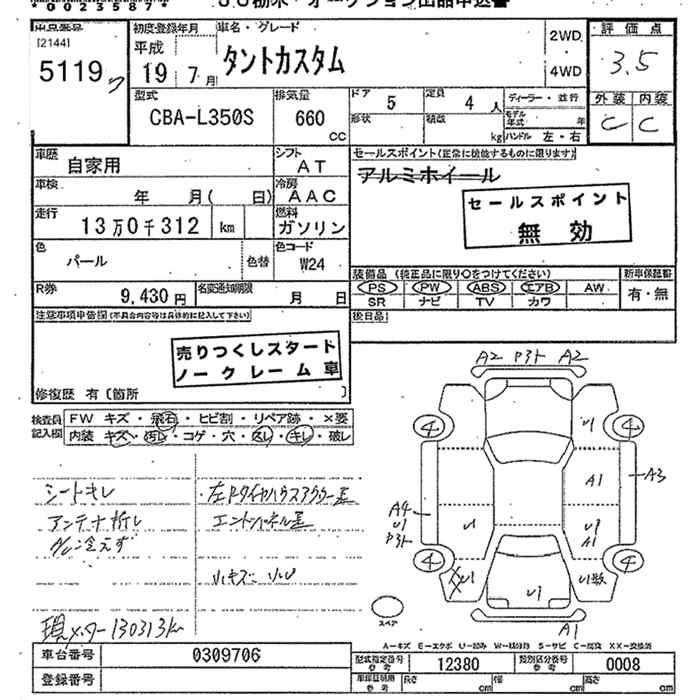 00235877
出品番号
[2144]
5119
初度登録年月
平成
19年 7月
車名・グレード
タントカスタム
2WD
4WD
評価点
3.5
外装 内装
C C
型式
CBA-L350S
排気量
660
CC
ドア
5
定員
4 人
形状
積載
kg
ディーラー・並行
モデル年式 年
ハンドル 左・右
車歴
自家用
シフト
AT
車検
年 月( 日)
冷房
AAC
走行
13万0千312 km
燃料
ガソリン
色
パール
色替
色コード
W24
R券
9,430円
名変通知期限
月 日
セールスポイント(正常に機能するものに限ります)
アルミホイール
セールスポイント
無効
装備品 (純正品に限り○をつけてください)
新車保証書
PS PW ABS エアB AW
SR ナビ TV カワ
有・無
後日品
注意事項申告欄(不具合内容等は具体的に記入して下さい)
売りつくしスタート
ノークレーム車
修復歴 有 [箇所 ]
検査員記入欄
FW キズ・飛石・ヒビ割・リペア跡・×要
内装 キズ・汚レ・コゲ・穴・スレ・キレ・破レ
シートキレ
アンテナ折レ
A/C冷えず
エンドパネル歪
小キズ
現メーター130313km
A2 P3ト A2
4 4
U1
A1
A3
A4
U1
P3ト
U1
A1
4 4
U1
A1
スペア
A-キズ E-エクボ U-凹み W-補修跡 S-サビ C-腐食 XX-交換済
車台番号
0309706
登録番号
型式指定番号
参考
12380
類別区分番号
参考
0008
車庫証明用
参考
長さ cm
幅 cm
高さ cm